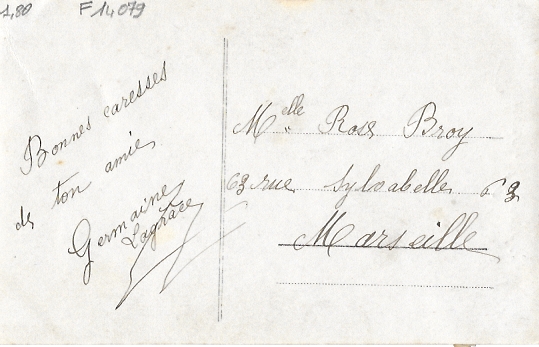 1,80 F14079
Bonnes caresses
de ton amie
Germaine
Lagrace
Melle Rose Broy
63 rue Sylvabelle 63
Marseille